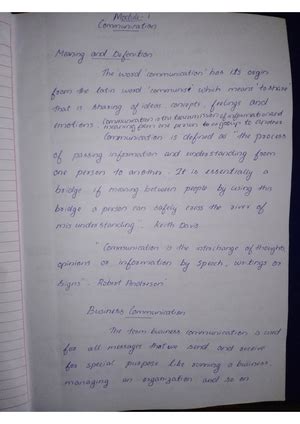 Module: 1
Communication
Meaning and Definition
The word 'communication' has its origin
from the latin word 'communis' which means to share
that is sharing of ideas, concepts, feelings and
emotions. Communication is the transmission of information and
meaning from one person to or group to another
Communication is defined as "the process
of passing information and understanding from
one person to another. It is essentially a
bridge of meaning between people by using this
bridge a person can safely cross the river of
mis understanding". Keith Davis
"Communication is the interchange of thoughts,
opinions or information by speech, writings or
signs" - Robert Anderson
Business Communication
The term business communication is used
for all messages that we send and receive
for special purpose like running a business,
managing an organization and so on